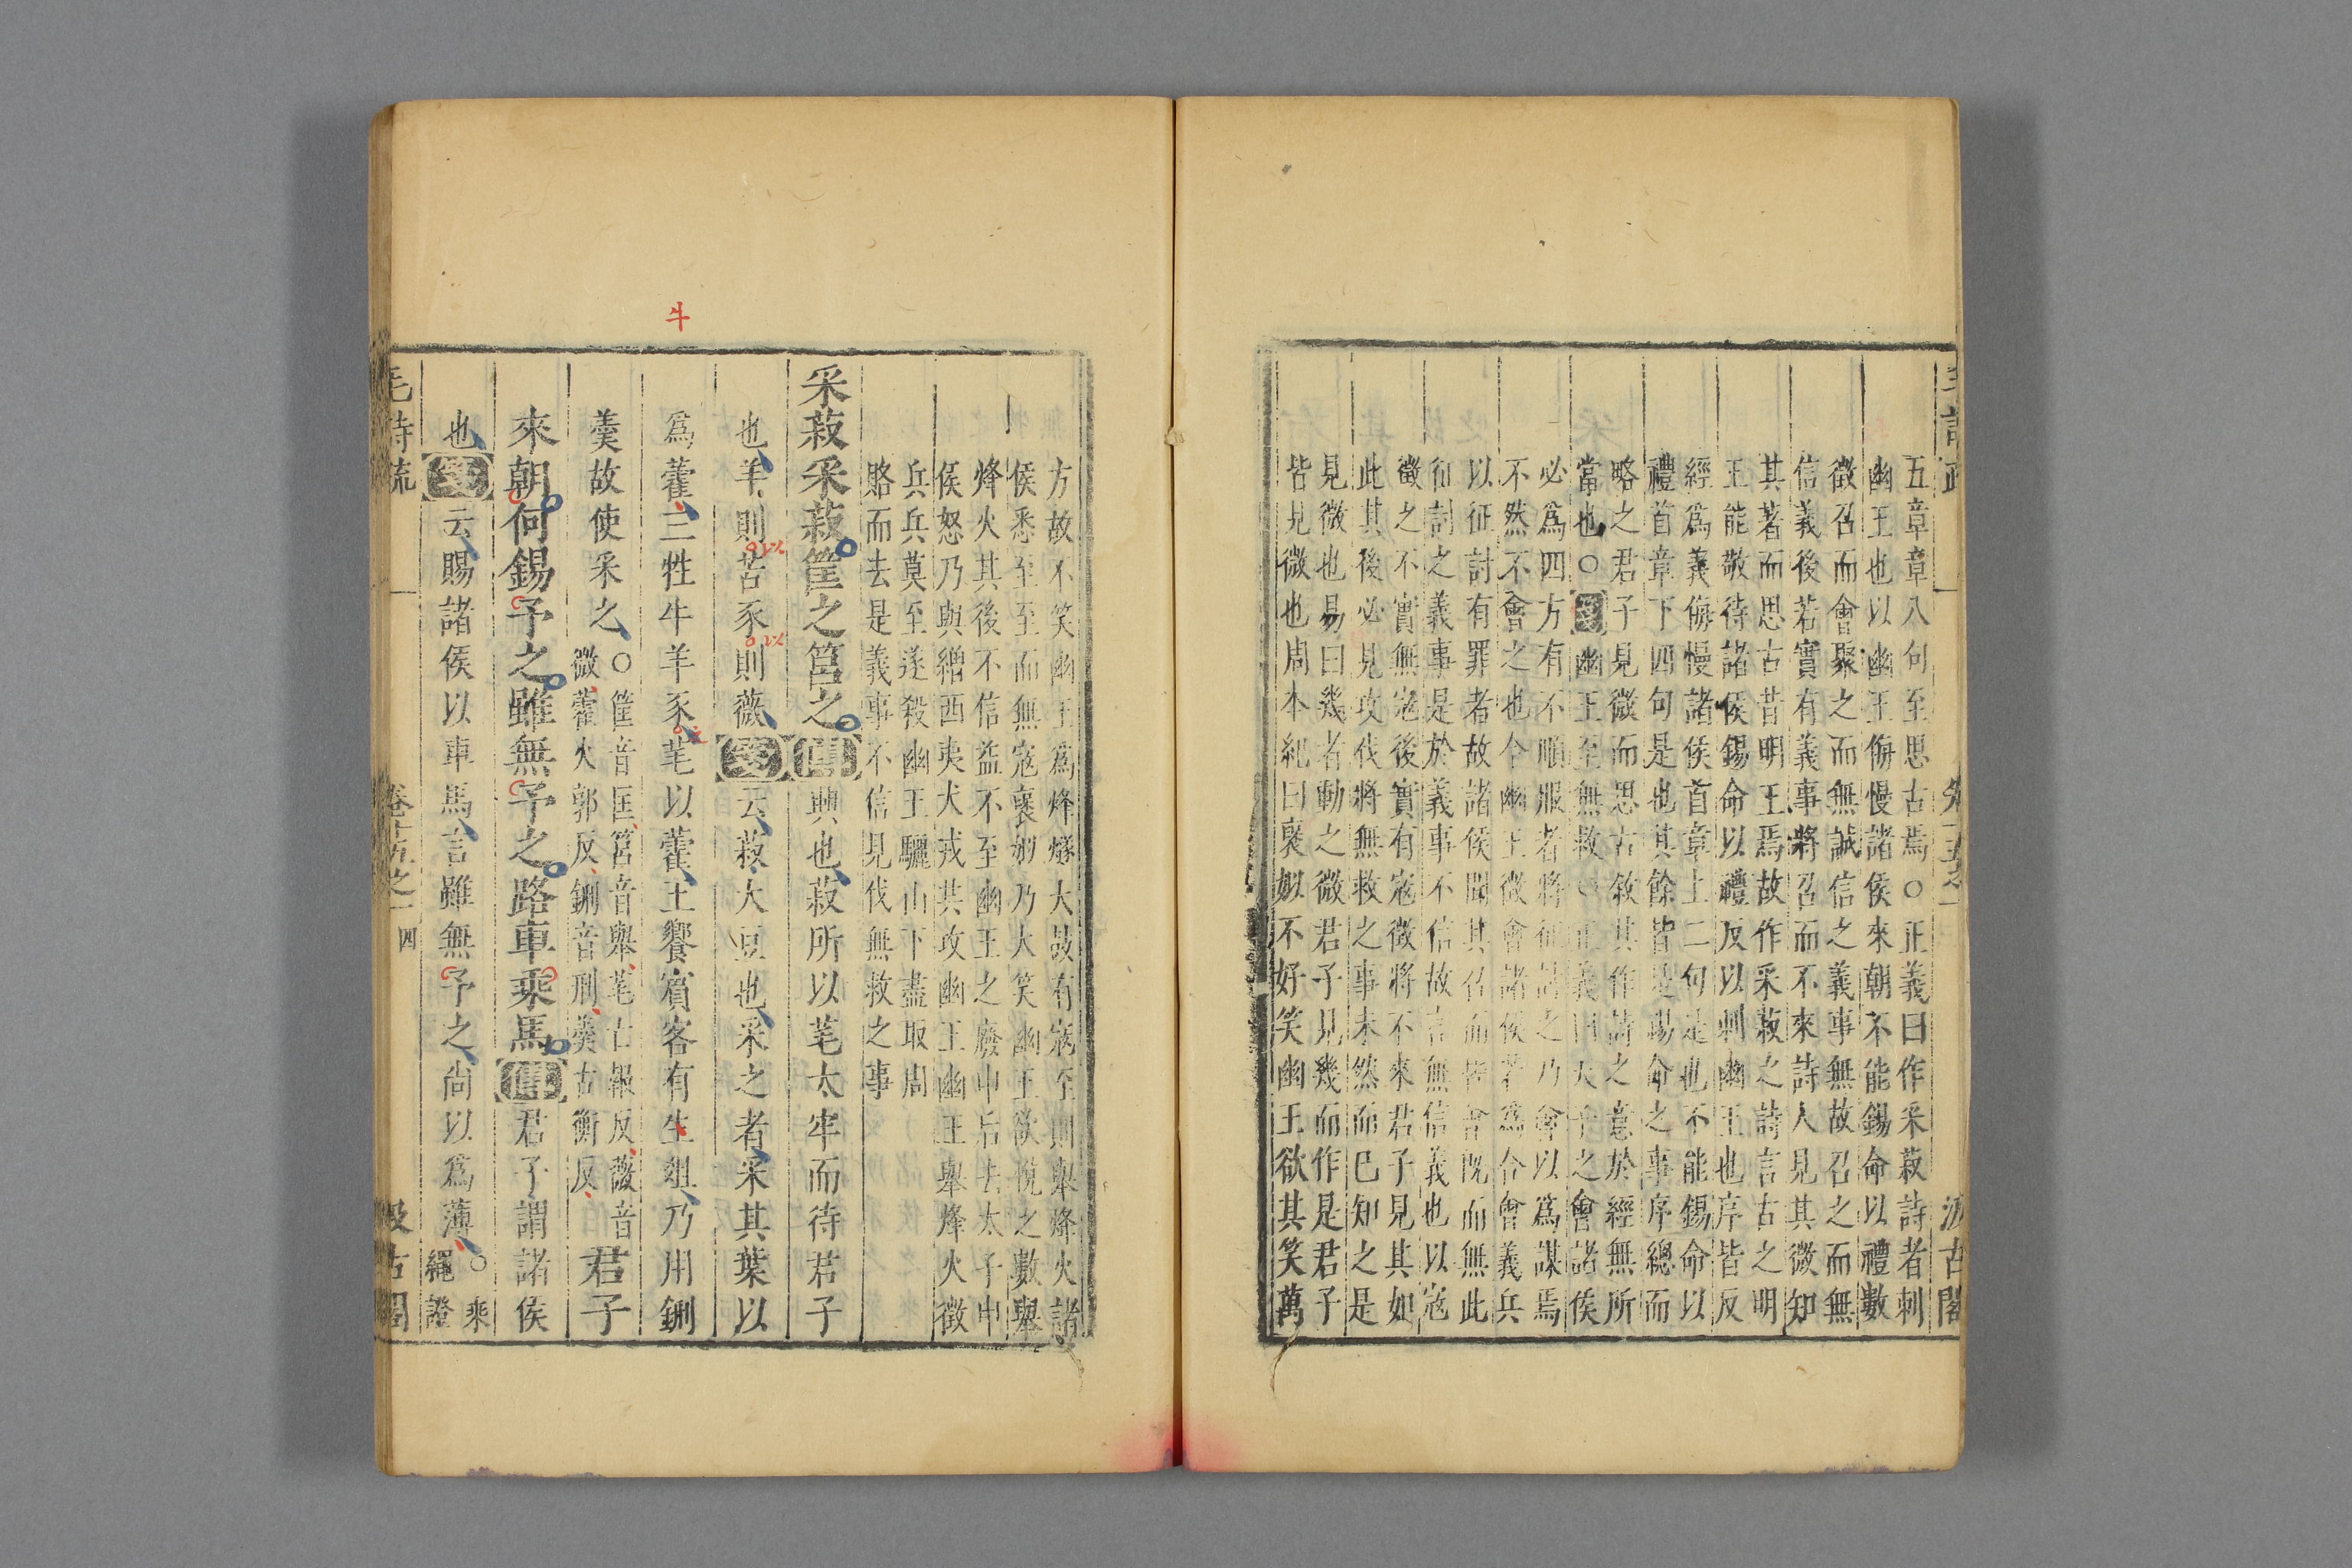 五章章八句至思古焉○正義曰作采菽詩者刺
幽王也以幽王侮慢諸侯來朝不能錫命以禮數
徵召而會聚之而無誠信之義事無故召之而無
信義後若實有義事將召而不來詩人見其微知
其著而思古昔明王焉故作采菽之詩言古之明
王能敬待諸侯錫命以禮反以刺幽王也序皆反
經爲義侮慢諸侯首章上二句是也不能錫命以
禮首章下四句是也其餘皆是錫命之事序總而
略之君子見微而思古敘其作詩之意於經無所
當也○箋幽王至無救○正義曰天子之會諸侯
必爲四方有不順服者將征討之乃會以爲謀焉
不然不會之也今幽王徵會諸侯若爲合會義兵
以征討有罪者故諸侯聞其召而皆會既而無此
征討之義事是於義事不信故言無信義也以寇
徵之不實無寇後實有寇徵將不來君子見其如
此其後必見攻伐將無救之事未然而已知之是
見微也易曰幾者動之微君子見幾而作是君子
皆見微也周本紀曰褒姒不好笑幽王欲其笑萬
方故不笑幽王爲烽燧大鼓有寇至則舉烽火諸
侯悉至至而無寇褒姒乃大笑幽王欲悅之數舉
烽火其後不信益不至幽王之廢申后去太子申
侯怒乃與繒西夷犬戎共攻幽王幽王舉烽火徵
兵兵莫至遂殺幽王驪山下盡取周
賂而去是義事不信見伐無救之事
采菽采菽筐之筥之傳興也菽所以芼太牢而待君子
也羊則苦豕則薇箋云菽大豆也采之者采其葉以
牛
爲藿三牲牛羊豕芼以藿王饗賓客有生俎乃用鉶
羹故使采之○筐音匡筥音舉芼亡報反薇音
微藿火郭反鉶音刑羹古衡反君子
來朝何錫予之雖無予之路車乘馬傳君子謂諸侯
也箋云賜諸侯以車馬言雖無予之尚以爲薄○乘
繩證
毛詩疏 卷十五之一 四 汲古閣